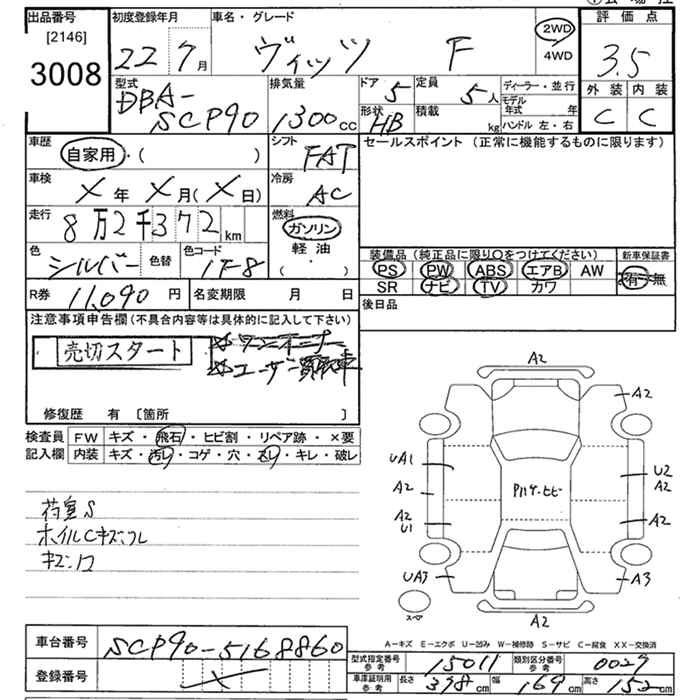 出品番号 [2146] 3008
初度登録年月 22 7月
車名・グレード ヴィッツ F
2WD 4WD
評価点 3.5
外装 C 内装 C
型式 DBA-SCP90
排気量 1300cc
ドア 5 定員 5人
形状 HB 積載 kg
ディーラー・並行
モデル年式 年
ハンドル 左・右
車歴 自家用・( )
シフト FAT
セールスポイント (正常に機能するものに限ります)
車検 X年 X月(X日)
冷房 AC
走行 8万2千372km
燃料 ガソリン 軽油 ( ・ )
色 シルバー 色替 色コード 1F8
装備品 (純正品に限り○をつけてください) 新車保証書
PS PW ABS エアB AW 有・無
SR ナビ TV カワ
R券 11,090円 名変期限 月 日
後日品
注意事項申告欄 (不具合内容等は具体的に記入して下さい)
売切スタート
ワンオーナー
ユーザー買取車
修復歴 有 〔箇所 〕
検査員 FW キズ・飛石・ヒビ割・リペア跡・×要
記入欄 内装 キズ・汚レ・コゲ・穴・スレ・キレ・破レ
荷室S
ホイルCキズスレ
A2
A2
UA1
U2
A2
A2
A2
U1
A2
UA3
A3
スペア
A2
A-キズ E-エクボ U-凹み W-補修跡 S-サビ C-腐食 XX-交換済
車台番号 SCP90-5168860
登録番号
型式指定番号 参考 15011 類別区分番号 参考 0029
車庫証明用 参考 長さ 378cm 幅 169cm 高さ 152cm